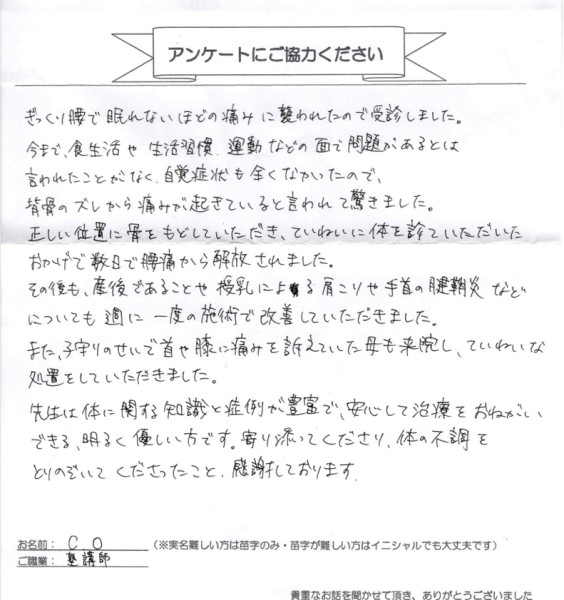 アンケートにご協力ください
ぎっくり腰で眠れないほどの痛みに襲われたので受診しました。
今まで、食生活や生活習慣、運動などの面で問題があるとは
言われたことがなく、自覚症状も全くなかったので、
背骨のズレから痛みが起きていると言われて驚きました。
正しい位置に骨をもどしていただき、ていねいに体を診ていただいた
おかげで数日で腰痛から解放されました。
その後も、産後であることや授乳による肩こりや手首の腱鞘炎など
についても週に一度の施術で改善していただきました。
また、子守りのせいで首や膝に痛みを訴えていた母も来院し、ていねいな
処置をしていただきました。
先生は体に関する知識と症例が豊富で、安心して治療をおねがい
できる、明るく優しい方です。寄り添ってくださり、体の不調を
とりのぞいてくださったこと、感謝しております。
お名前： C O （※実名難しい方は苗字のみ・苗字が難しい方はイニシャルでも大丈夫です）
ご職業： 塾講師
貴重なお話を聞かせて頂き、ありがとうございました